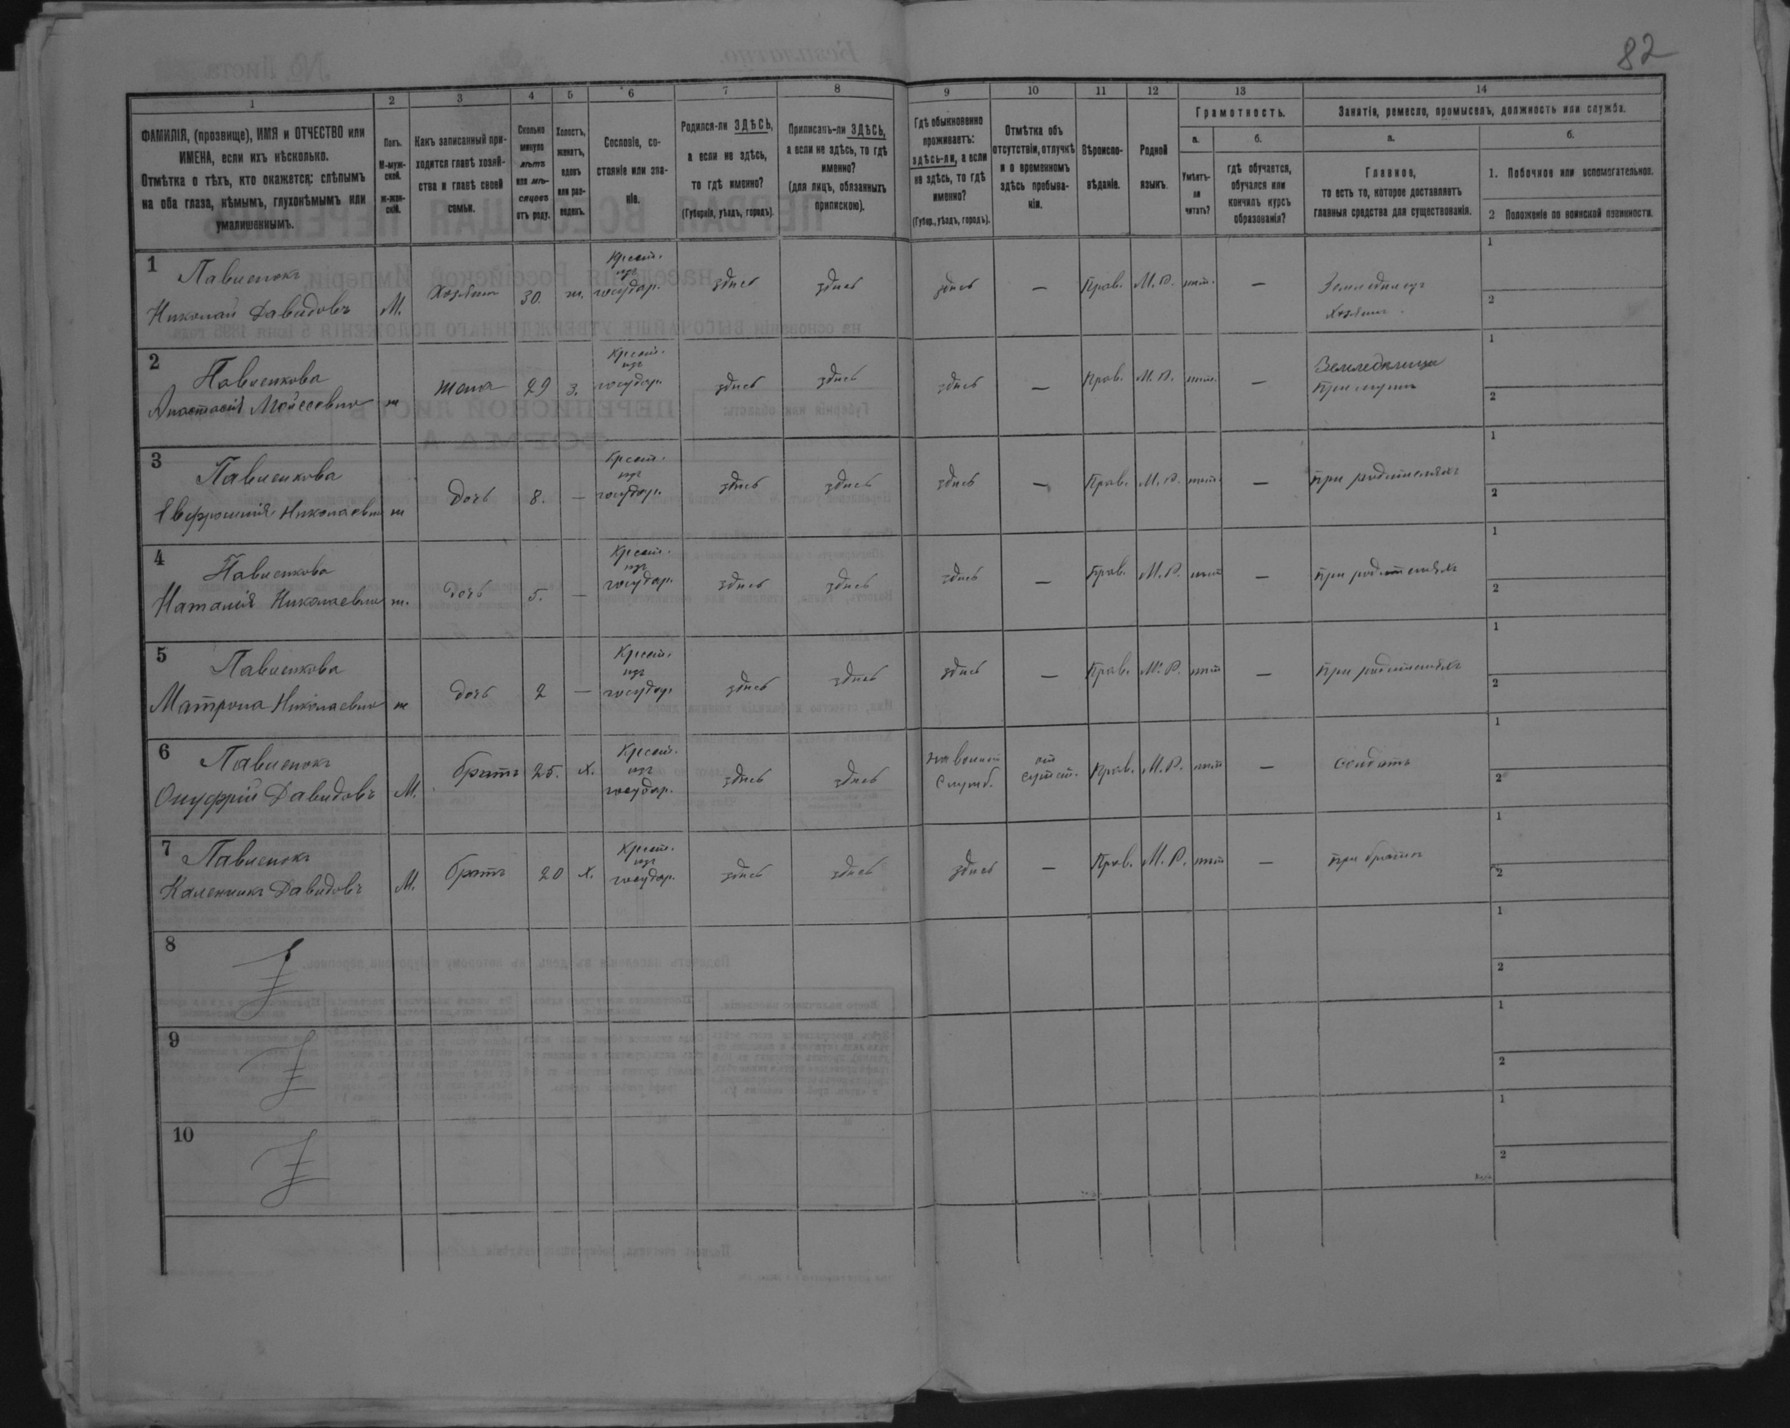 82
1 2 3 4 5 6 7 8 9 10 11 12 13 14
ФАМИЛІЯ, (прозвище), ИМЯ и ОТЧЕСТВО или
ИМЕНА, если ихъ нѣсколько.
Отмѣтка о тѣхъ, кто окажется: слѣпымъ
на оба глаза, нѣмымъ, глухонѣмымъ или
умалишеннымъ.
Полъ.
М-муж-
ской.
ж-жен-
скій.
Какъ записанный при-
ходится главѣ хозяй-
ства и главѣ своей
семьи.
Сколько
минуло
лѣтъ
или мѣ-
сяцевъ
отъ роду.
Холостъ,
женатъ,
вдовъ
или раз-
веденъ.
Сословіе, со-
стояніе или зва-
ніе.
Родился-ли ЗДѢСЬ,
а если не здѣсь,
то гдѣ именно?
(Губернія, уѣздъ, городъ).
Приписанъ-ли ЗДѢСЬ,
а если не здѣсь, то гдѣ
именно?
(для лицъ, обязанныхъ
припискою).
Гдѣ обыкновенно
проживаетъ:
здѣсь-ли, а если
не здѣсь, то гдѣ
именно?
(Губер., уѣздъ, городъ).
Отмѣтка объ
отсутствіи, отлучкѣ
и о временномъ
здѣсь пребыва-
ніи.
Вѣроиспо-
вѣданіе.
Родной
языкъ.
Грамотность.
а.
Умѣетъ-
ли
читать?
б.
гдѣ обучается,
обучался или
кончилъ курсъ
образованія?
Занятіе, ремесло, промыселъ, должность или служба.
а.
Главное,
то есть то, которое доставляетъ
главныя средства для существованія.
б.
1. Побочное или вспомогательное.
2 Положеніе по воинской повинности.
1
Павленокъ
Николай Давидовъ
М. Хозяинъ 30 ж. Крест. изъ государ. здѣсь здѣсь здѣсь — Прав. М. Р. нѣт. — Земледѣлецъ
Хозяинъ
1
2
2
Павленкова
Анастасія Моисеевна
ж жена 29 з. Крест. изъ государ. здѣсь здѣсь здѣсь — Прав. М. Р. нѣт. — Земледѣлица
при мужѣ
1
2
3
Павленкова
Евфросинія Николаевна
ж дочь 8. — Крест. изъ государ. здѣсь здѣсь здѣсь — Прав. М. Р. нѣт. — при родителяхъ
1
2
4
Павленкова
Наталія Николаевна
ж. дочь 5. — Крест. изъ государ. здѣсь здѣсь здѣсь — Прав. М. Р. нѣт — при родителяхъ
1
2
5
Павленкова
Матрона Николаевна
ж дочь 2 — Крест. изъ государ. здѣсь здѣсь здѣсь — Прав. М. Р. нѣт — при родителяхъ
1
2
6
Павленокъ
Онуфрій Давидовъ
М. братъ 25. х. Крест. изъ государ. здѣсь здѣсь на военной служб. от сутст. Прав. М. Р. нѣт — солдатъ
1
2
7
Павленокъ
Каленикъ Давидовъ
М. братъ 20 х. Крест. изъ государ. здѣсь здѣсь здѣсь — Прав. М. Р. нѣт — при братѣ
1
2
8
1
2
9
1
2
10
1
2